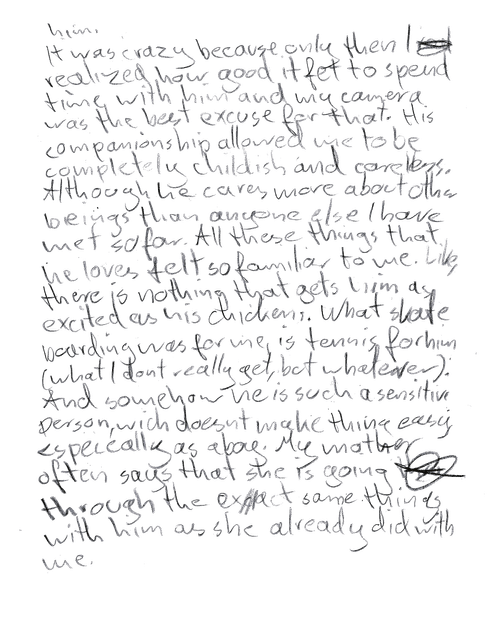 him.
It was crazy because only then I
realized how good it fet to spend
time with him and my camera
was the best excuse for that. His
companionship allowed me to be
completely childish and careless.
Although he cares more about other
beeings than anyone else I have
met so far. All these things that
he loves felt so familiar to me. Like,
there is nothing that gets him as
excited as his chickens. What skate
boarding was for me, is tennis for him
(what I dont really get, but whatever).
And somehow he is such a sensitive
person, wich doesnt make thing easy
especcally as aboy. My mother
often says that she is going
through the exact same things
with him as she already did with
me.